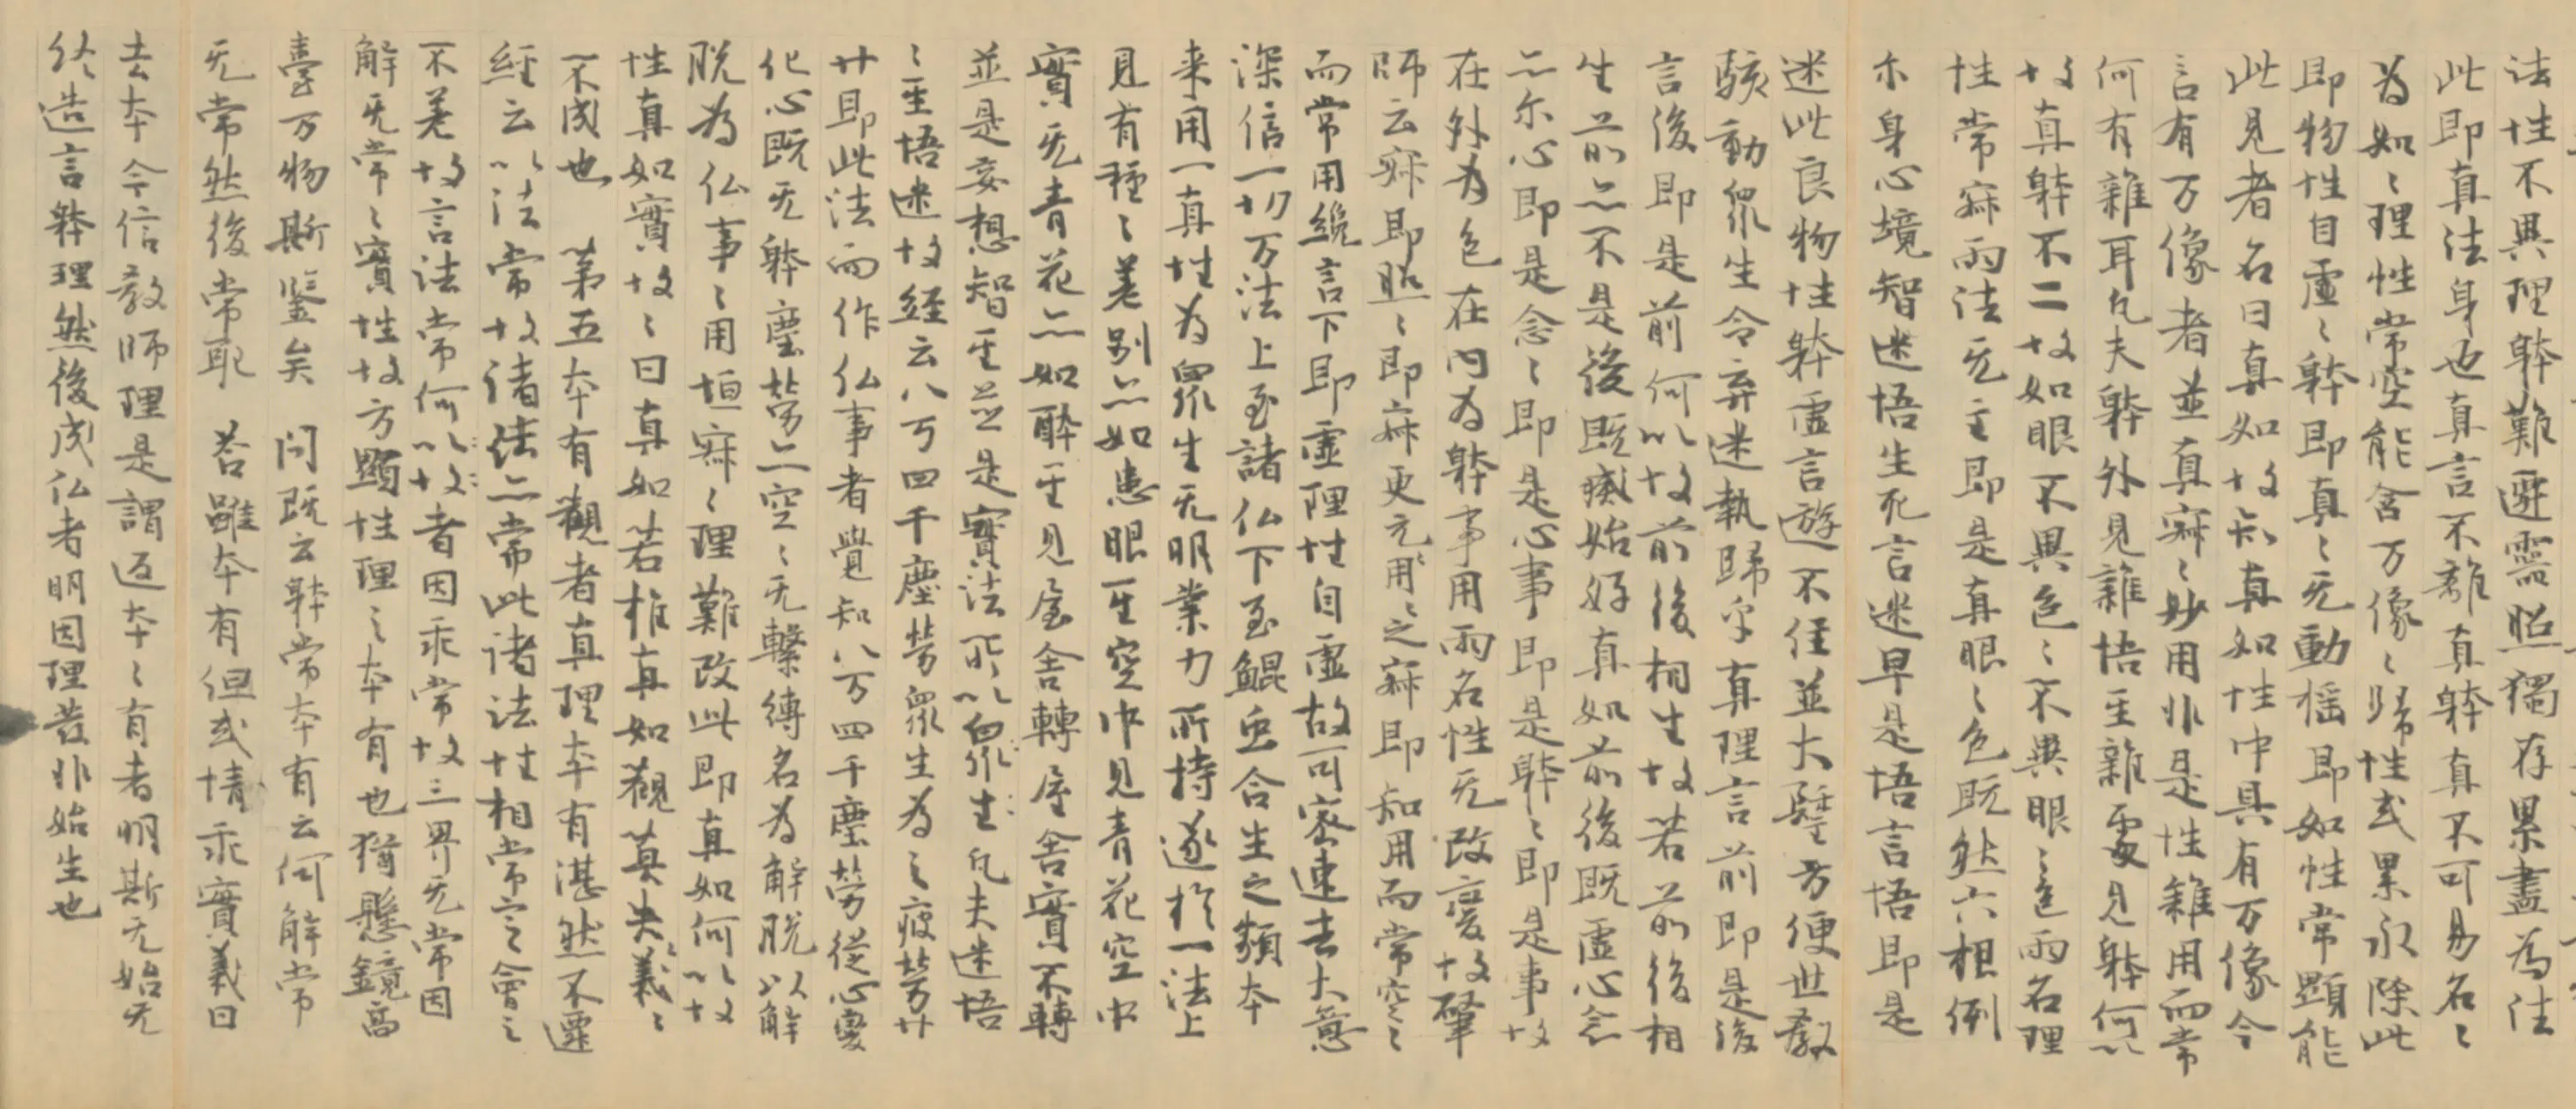 法性不異理躰難遷需照獨存累盡為法
此即真法身也真言不離真躰真不可易名〻
為如〻理性常空能含万像〻歸性或累永除此
即物性自虛〻躰即真〻无動摇即如性常顯能
此見者名曰真如故知真如性中具有万像今
言有万像者並真寂〻妙用非是性雜用而常
何有雜耳凡夫躰外見雜悟聖雜處見躰何以
故真躰不二故如眼不異色〻不異眼〻色兩名理
性常寂兩法无主即是真眼〻色既然六根例
尒身心境智迷悟生死言迷早是悟言悟即是
迷此良物性躰虛言遊不任並大聖方便世教
駭動眾生令弃迷執歸乎真理言前即是後
言後即是前何以故前後相生故若前後相
生前亦不是後既滅始好真如前後既虛心念
亦尔心即是念〻即是心事即是躰〻即是事故
在外為色在内為躰事用兩名性无改變故肇
師云寂即照〻即寂更无用〻之寂即知用而常空〻
而常用纔言下即虛理性自虛故可密速去大意
深信一切万法上至諸仏下至鯤虫含生之類本
来用一真性為眾生无明業力所持遂於一法上
見有種〻差别亦如患眼聖空中見青花空中
實无青花亦如醉聖見屋舍轉屋舍實不轉
並是妄想智聖並是實法所以眾生凡夫迷悟
〻聖悟迷故経云八万四千塵勞眾生為之疲勞廾
廾即此法而作仏事者覺知八万四千塵勞從心變
化心既无躰塵勞亦空〻无繫縛名為解脱以解
脱為仏事〻用恒寂〻理難改此即真如何以故
性真如實故〻曰真如若推真如觀莫失義〻
不成也 苐五本有觀者真理本有湛然不遷
經云以法常故諸佛亦常此諸法性相常之會之
不差故言法常何以故者因乖常故三界无常因
解无常〻實性故方顯性理之本有也猶懸鏡高
臺万物斯鑒矣 問既云躰常本有云何解常
无常然後常耶 荅雖本有但或情乖實義曰
去本今信教師理是謂返本〻有者明斯无始无
終造言躰理然後成仏者明因理發非始生也